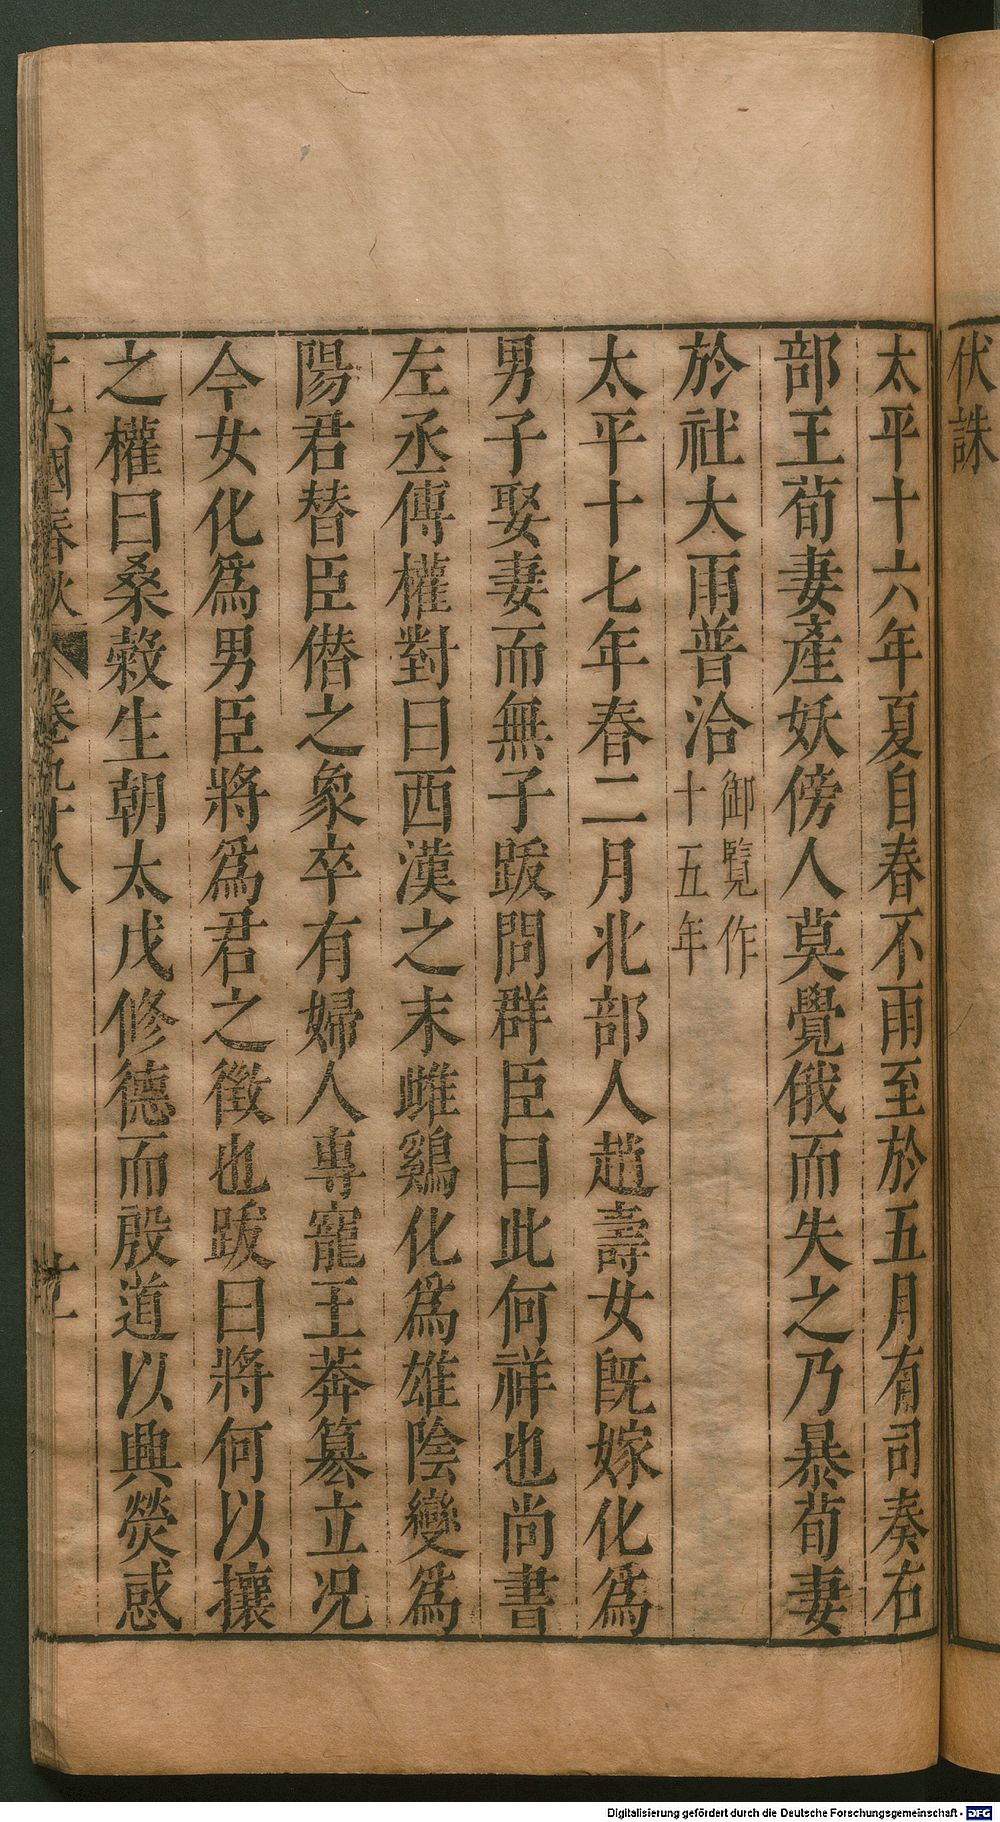 伏誅
太平十六年夏自春不雨至於五月有司奏右
部王荀妻產妖傍人莫覺俄而失之乃暴荀妻
於社大雨普洽御覽作十五年
太平十七年春二月北部人趙壽女既嫁化為
男子娶妻而無子跋問群臣曰此何祥也尚書
左丞傅權對曰西漢之末雌鷄化為雄陰變為
陽君替臣僣之象卒有婦人專寵王莽篡立况
今女化為男臣將為君之徵也跋曰將何以攘
之權曰桑穀生朝太戊修德而殷道以興熒惑
十六國春秋 卷九十八
Digitalisierung gefördert durch die Deutsche Forschungsgemeinschaft - DFG